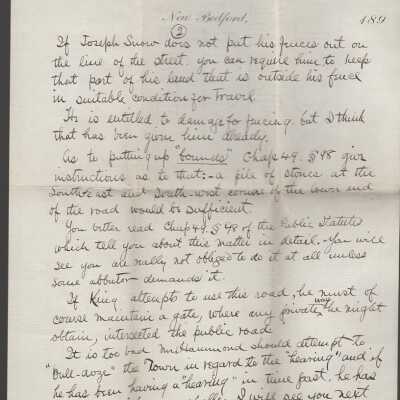 New Bedford, 189
2
If Joseph Snow does not put his fences out on
the line of the street. you can require him to keep
that part of his land that is outside his fence
in suitable condition for Travel.
He is entitled to damage for fencing. but I think
that has been given him already.
As to putting up "bounds" Chap 49. § 98 give
instructions as to that:- a pile of stones at the
South-east and South-west corners of the town end
of the road would be sufficient.
You better read Chap 49. § 98 of the Public Statutes
which tell you about this matter in detail. You will
see you are really not obliged to do it at all unless
some abbuttor demands it.
If King attempts to use this road, he must of
course maintain a gate, where any private way he might
obtain, intersected the public road.
It is too bad Mr Hammond should attempt to
"Bull-doze" the Town in regard to the "hearing" and if
he has been having a "hearing" in time past, he has
I will see you next